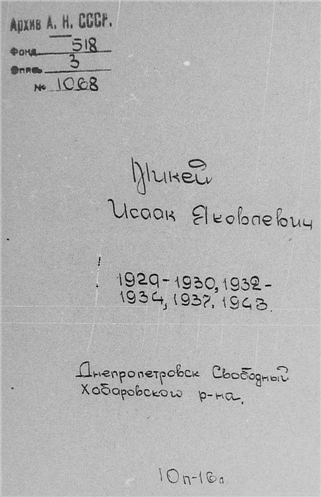 Архив А. Н. СССР.
Фонд 518
Опись 3
№ 1068
Микей
Исаак Яковлевич
1929-1930, 1932-
1934, 1937, 1943.
Днепропетровск Свободный
Хабаровского р-на.
10п-16л